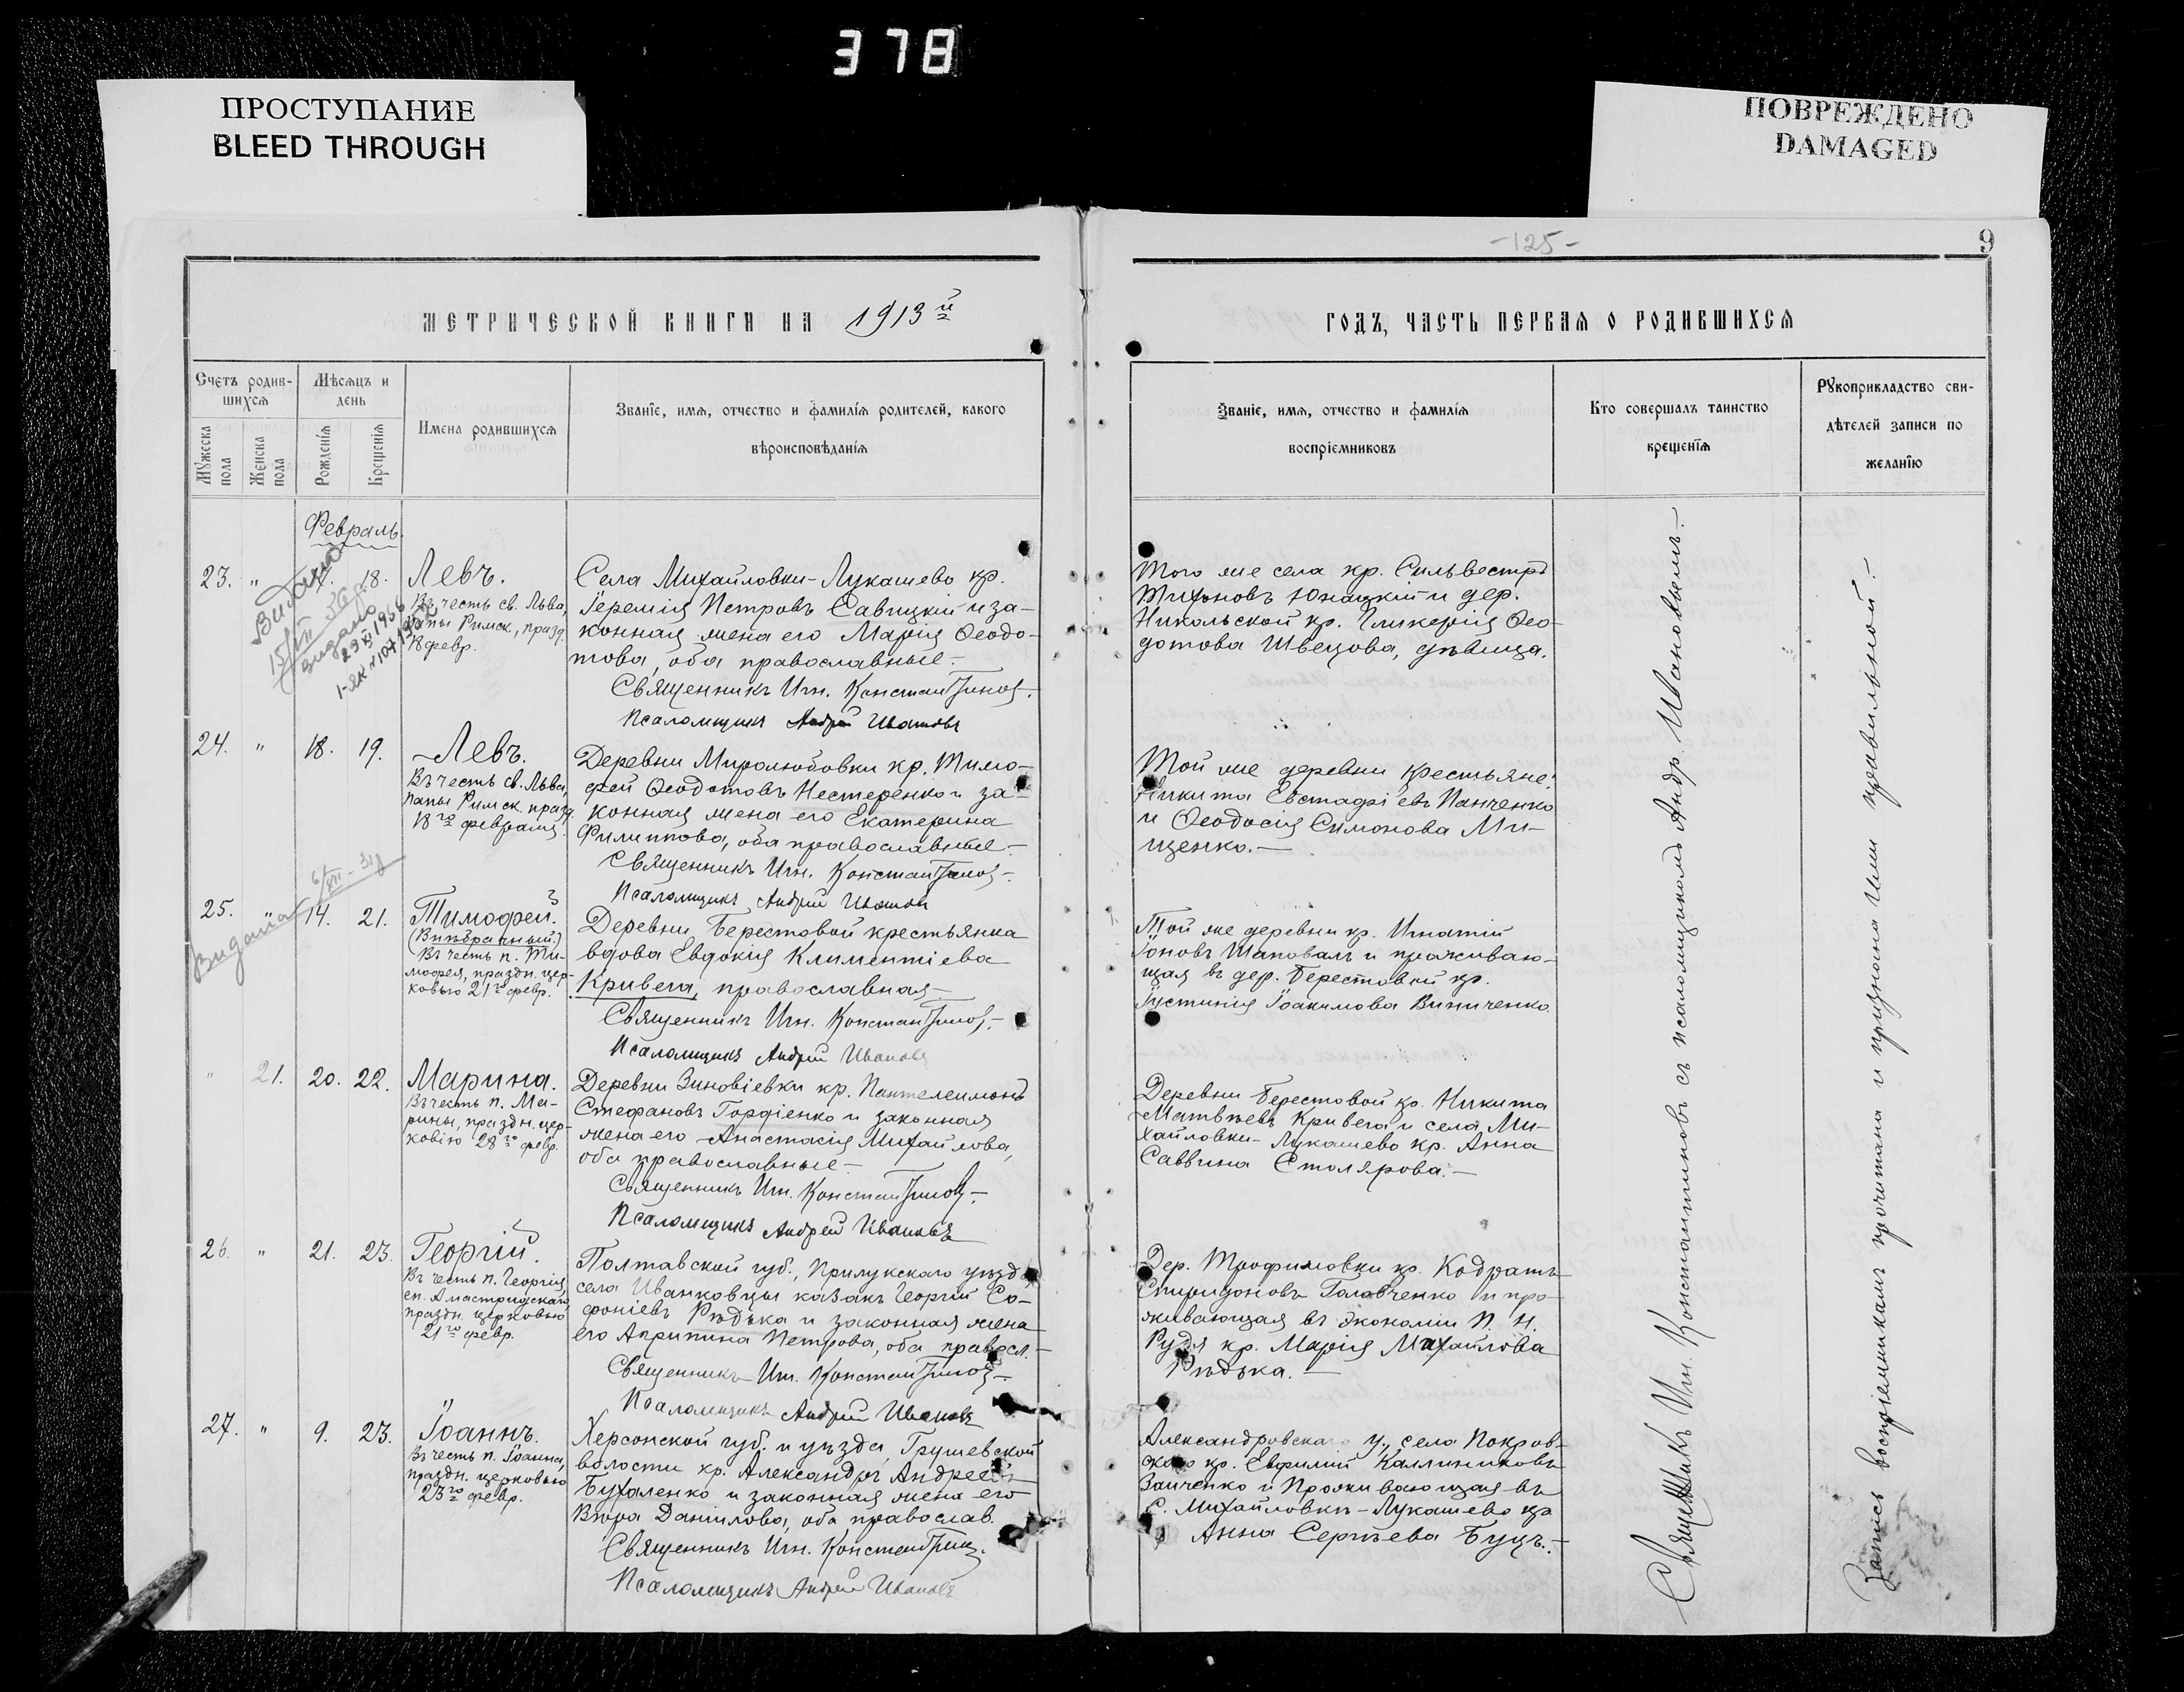 378
ПРОСТУПАНИЕ
BLEED THROUGH
ПОВРЕЖДЕНО
DAMAGED
-125-
9
МЕТРИЧЕСКОЙ КНИГИ НА 1913й
ГОДЪ, ЧАСТЬ ПЕРВАЯ О РОДИВШИХСЯ
Счетъ родив-
шихся
Мужеска пола
Женска пола
Мѣсяцъ и
день
Рожденія
Крещенія
Имена родившихся
Званіе, имя, отчество и фамилія родителей, какого
вѣроисповѣданія
Званіе, имя, отчество и фамилія
воспріемниковъ
Кто совершалъ таинство
крещенія
Рукоприкладство сви-
дѣтелей записи по
желанію
Февраль.
23. " 18.
Левъ.
Въ честь св. Льва,
папы Римск., празд.
18 февр.
Видано
15/VII
Видано
23 XI 1966
Села Михайловки-Лукашево кр.
Іеремія Петровъ Савицкій и за-
конная жена его Марія Ѳеодо-
това, оба православные.-
Священникъ Ин. Константинов.
Псаломщикъ Андрей Ивановъ
Того же села кр. Сильвестръ
Тихоновъ Юнацкій и дер.
Никольской кр. Гликерія Ѳео-
дотова Швецова, дѣвица.
24. " 18. 19.
Левъ.
Въ честь св. Льва,
папы Римск. празд.
18го февраля.
Деревни Миролюбовки кр. Тимо-
фей Ѳеодотовъ Нестеренко и за-
конная жена его Екатерина
Филиппова, оба православные.-
Священникъ Ин. Константинов.-
Псаломщикъ Андрей Ивановъ
Той же деревни крестьяне:
Никита Евстафіевъ Панченко
и Ѳеодосія Симонова Ми-
щенко.-
25. " 14. 21.
Видана
Тимофей.
(Внѣбрачный.)
Въ честь п. Ти-
мофея, праздн. цер-
ковью 21го февр.
Деревни Берестовой крестьянка
вдова Евдокія Климентіева
Кривега, православная.-
Священникъ Ин. Константинов.-
Псаломщикъ Андрей Ивановъ
Той же деревни кр. Игнатій
Іоновъ Шаповалъ и проживаю-
щая въ дер. Берестовой кр.
Іустинія Іоакимова Виниченко.
" 21. 20. 22.
Марина.
Въ честь п. Ма-
рины, праздн. цер-
ковію 28го февр.
Деревни Зиновіевки кр. Пантелеимонъ
Стефановъ Гордіенко и законная
жена его Анастасія Михайлова,
оба православные.-
Священникъ Ин. Константинов.-
Псаломщикъ Андрей Ивановъ
Деревни Берестовой кр. Никита
Матвѣевъ Кривега и села Ми-
хайловки-Лукашево кр. Анна
Саввина Столярова.-
26. " 21. 23.
Георгій.
Въ честь п. Георгія,
еп. Амастридскаго
праздн. церковью
21го февр.
Полтавской губ., Прилукскаго уѣзда
села Иванковцы казакъ Георгій Со-
фоніевъ Рѣдька и законная жена
его Агрипина Петрова, оба правосл.-
Священникъ Ин. Константинов.-
Псаломщикъ Андрей Ивановъ
Дер. Трофимовки кр. Кодратъ
Спиридоновъ Голавченко и про-
живающая въ экономіи П. Н.
Рудя кр. Марія Михайлова
Рѣдька.-
27. " 9. 23.
Іоаннъ.
Въ честь п. Іоанна,
праздн. церковью
23го февр.
Херсонской губ. и уѣзда, Грушевской
волости кр. Александръ Андреевъ
Бухаленко и законная жена его
Вѣра Даніилова, оба православ.
Священникъ Ин. Константинов.
Псаломщикъ Андрей Ивановъ
Александровскаго у., села Покров-
скаго кр. Евфимій Каллиниковъ
Заиченко и проживающая въ
с. Михайловкѣ-Лукашево кр.
Анна Сергѣева Буцъ.-
Священникъ Ин. Константиновъ съ псаломщикомъ Андр. Ивановымъ.-
Запись воспріемникамъ прочитана и признана ими правильной.-